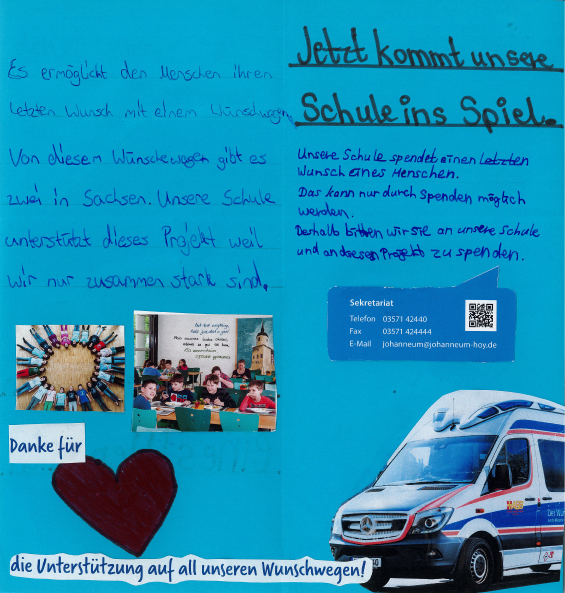 Es ermöglicht den Menschen ihren
letzten Wunsch mit einem Wünschwagen.
Von diesem Wünschewagen gibt es
zwei in Sachsen. Unsere Schule
unterstützt dieses Projekt weil
wir nur zusammen stark sind.
Danke für
die Unterstützung auf all unseren Wunschwegen!
Jetzt kommt unsere
Schule ins Spiel.
Unsere Schule spendet einen letzten
Wunsch eines Menschen.
Das kann nur durch Spenden möglich
werden.
Deshalb bitten wir sie an unsere Schule
und an dieses Projekt zu spenden.
Sekretariat
Telefon 03571 42440
Fax 03571 424444
E-Mail johanneum@johanneum-hoy.de